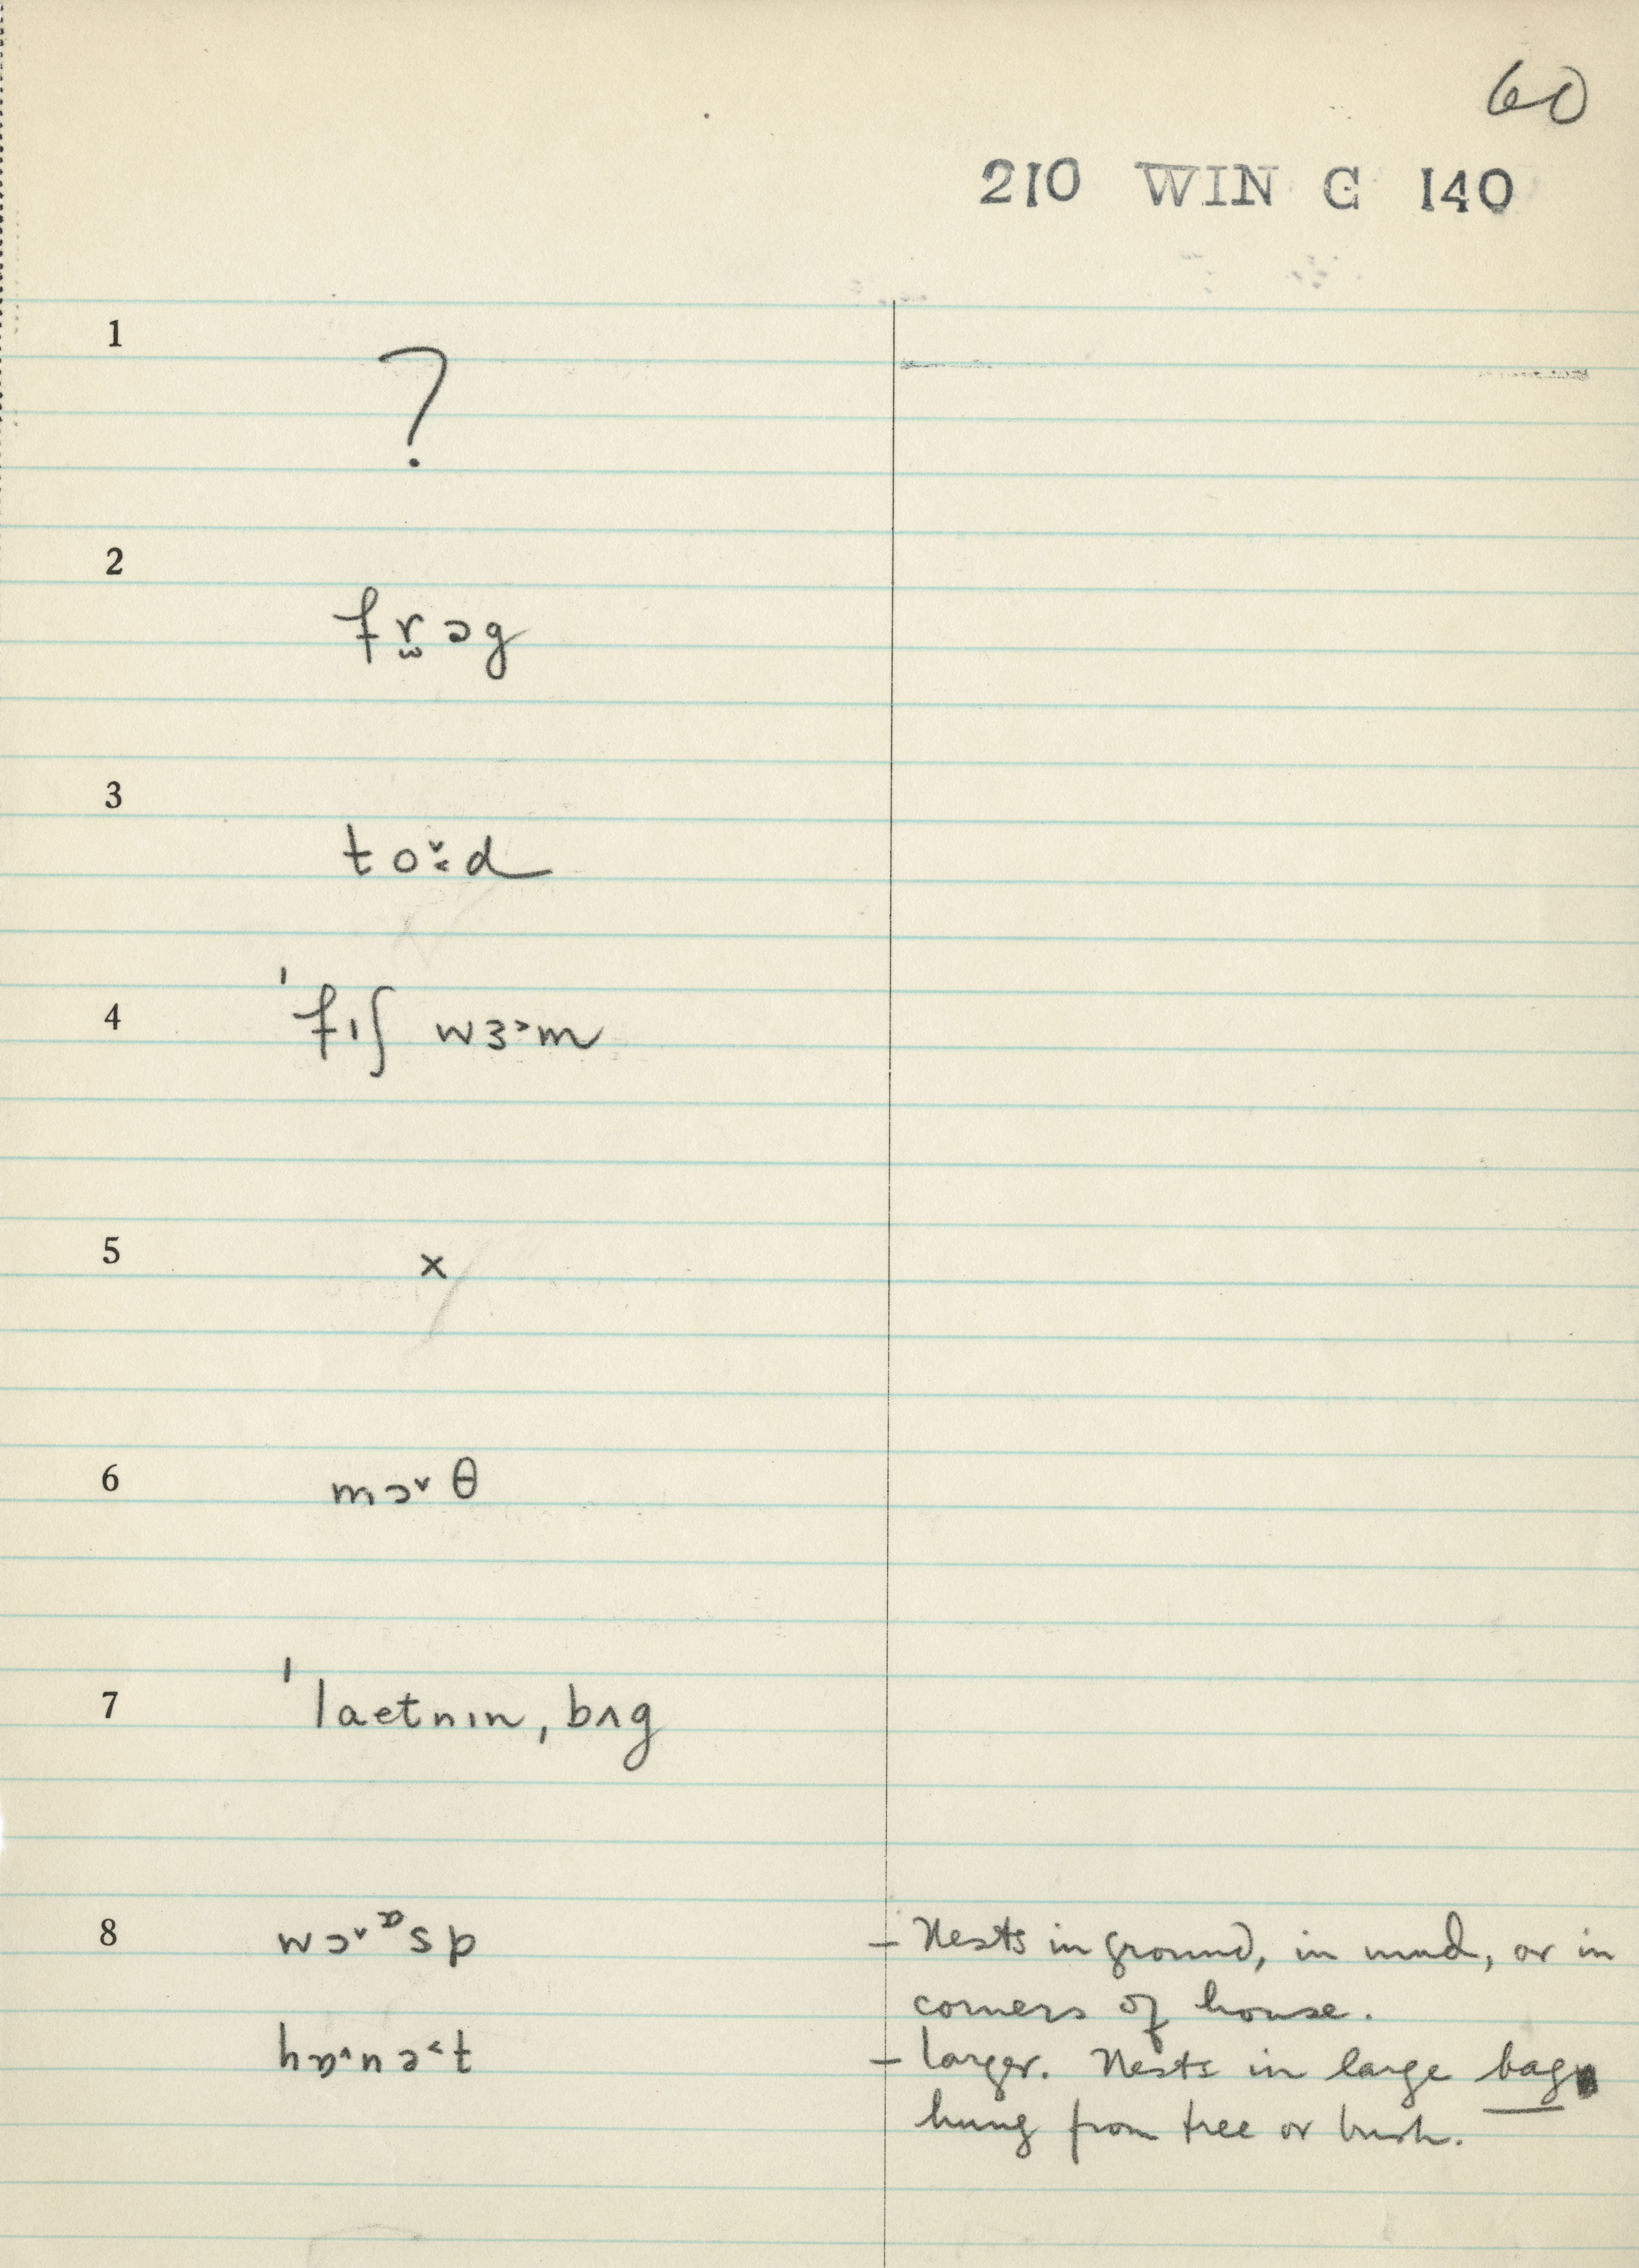 60
210 WIN G 140
1
?
2
fr̫ɔg
3
to̬ːd
4
ˈfɪʃ wɜ˃m
5
x
6
mɔ˅θ
7
ˈlaetnɪn, bʌg
8
wɔ˅ᶛsp
– Nests in ground, in mud, or in
corners of house.
– larger. Nests in large bag
hung from tree or bush.